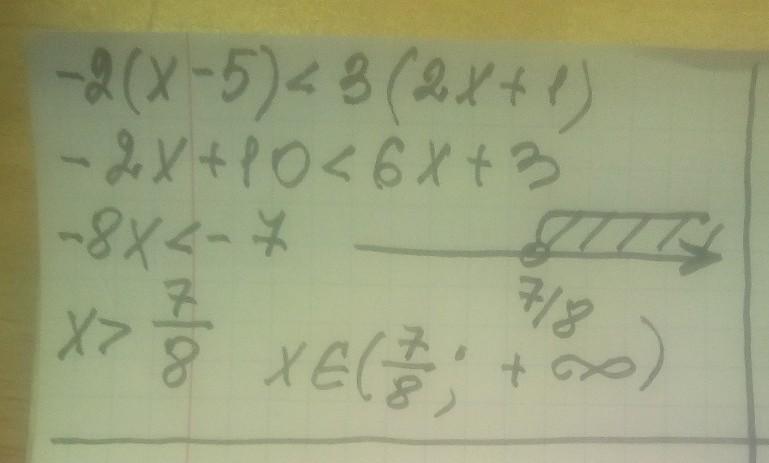 -2(x-5)<3(2x+1)
-2x+10<6x+3
-8x<-7
7/8
x>7/8 x∈(7/8;+∞)